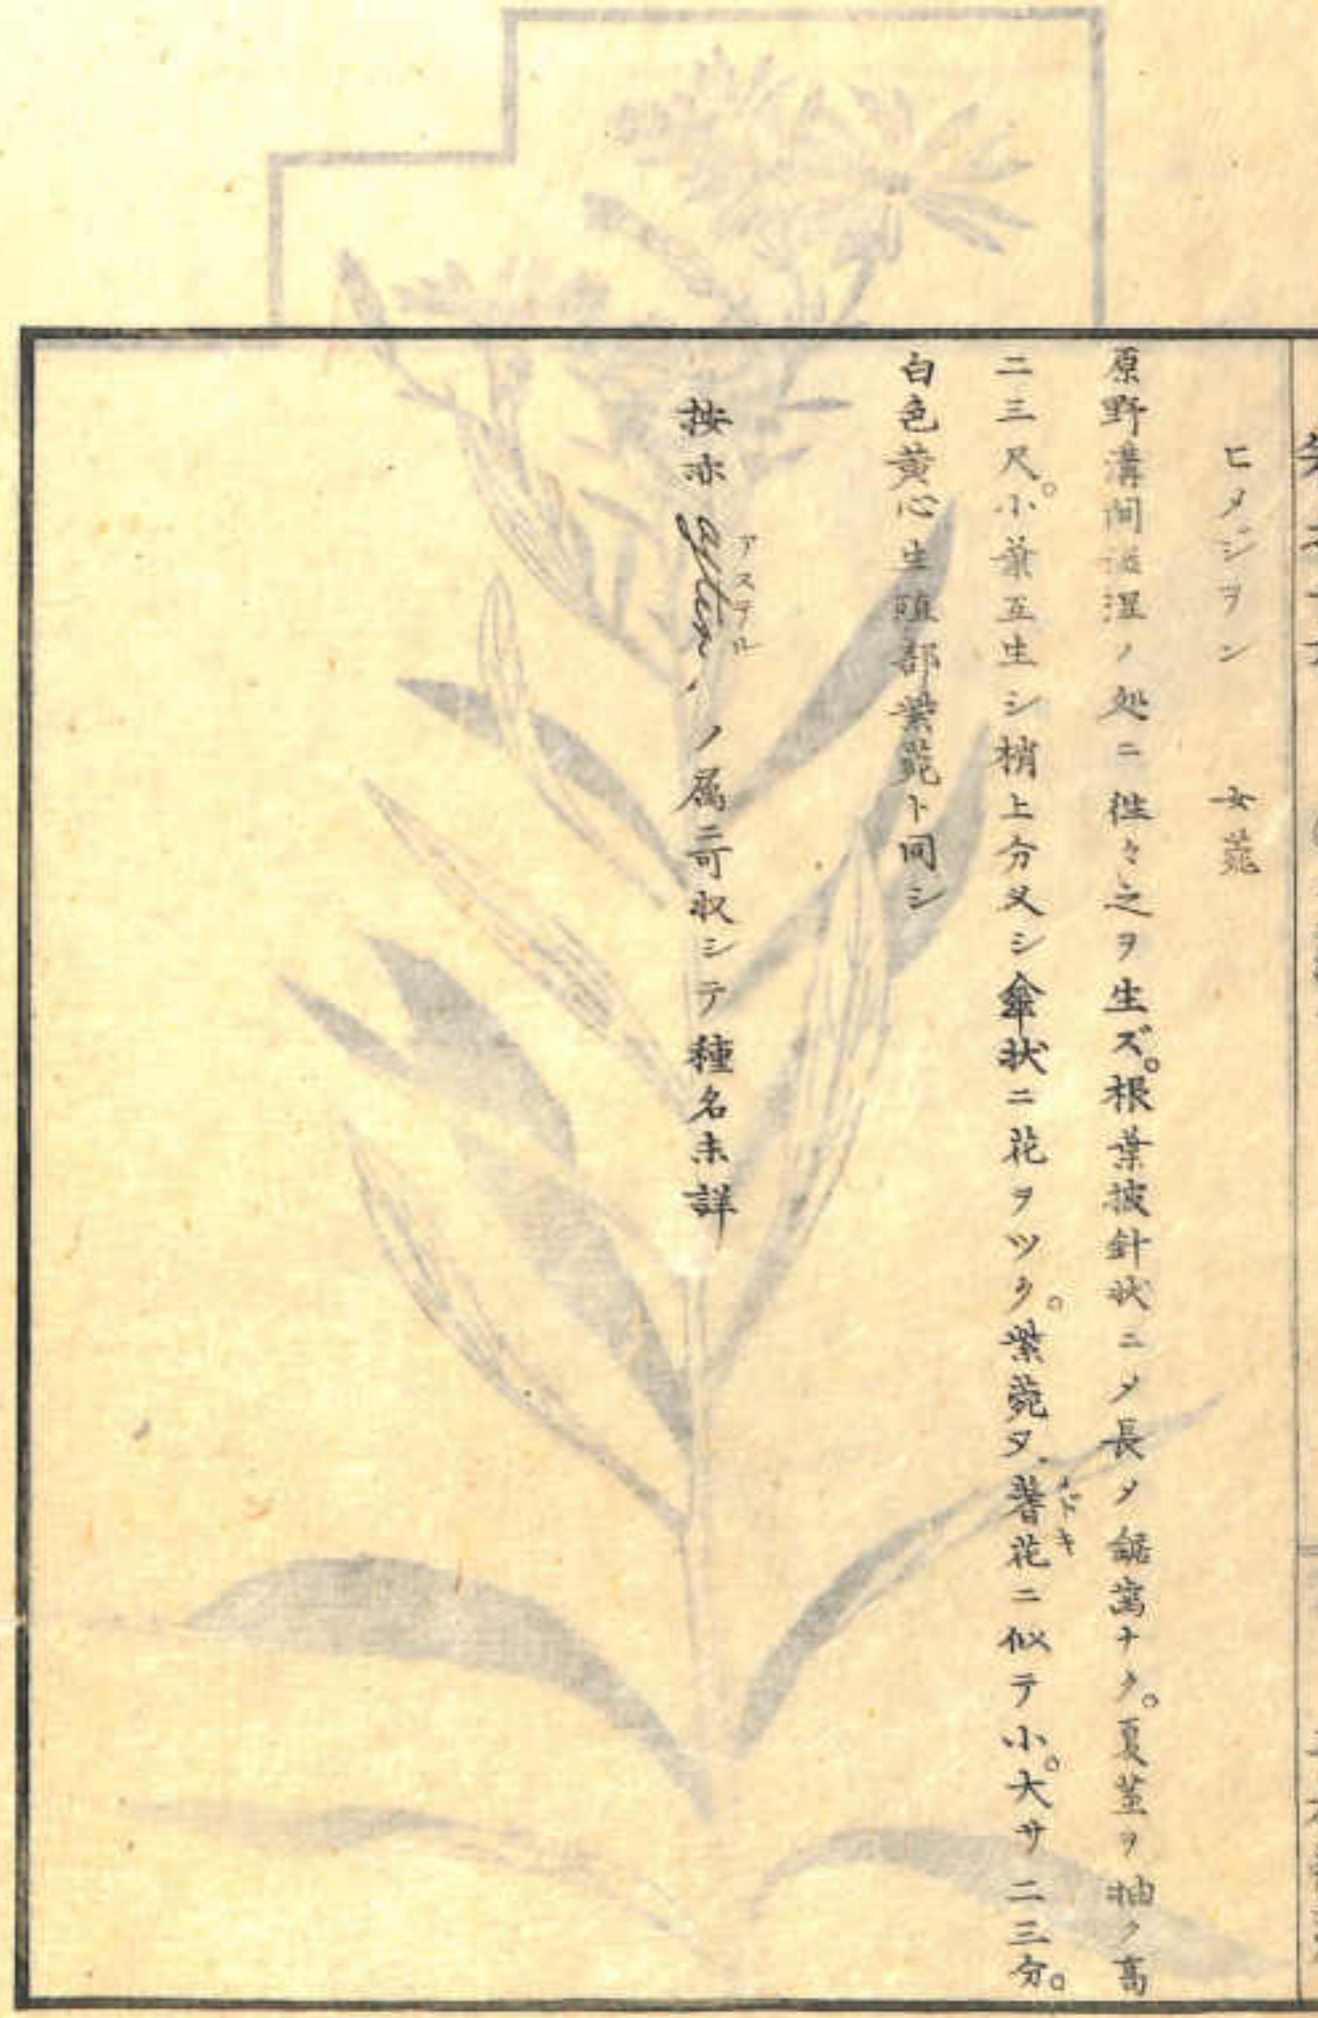 ヒメジヲン 女菀
原野溝間湿ノ処ニ徃々之ヲ生ズ。根葉披針状ニメ長メ鋸歯ナク。夏茎ヲ抽ク高
二三尺。小葉互生シ梢上分叉シ傘状ニ花ヲツク。紫菀又蓍花ニ似テ小。大サ二三分。
メドキ
白色黄心生殖部紫菀ト同シ
按亦 aster アステル ノ属ニ可収シテ種名未詳